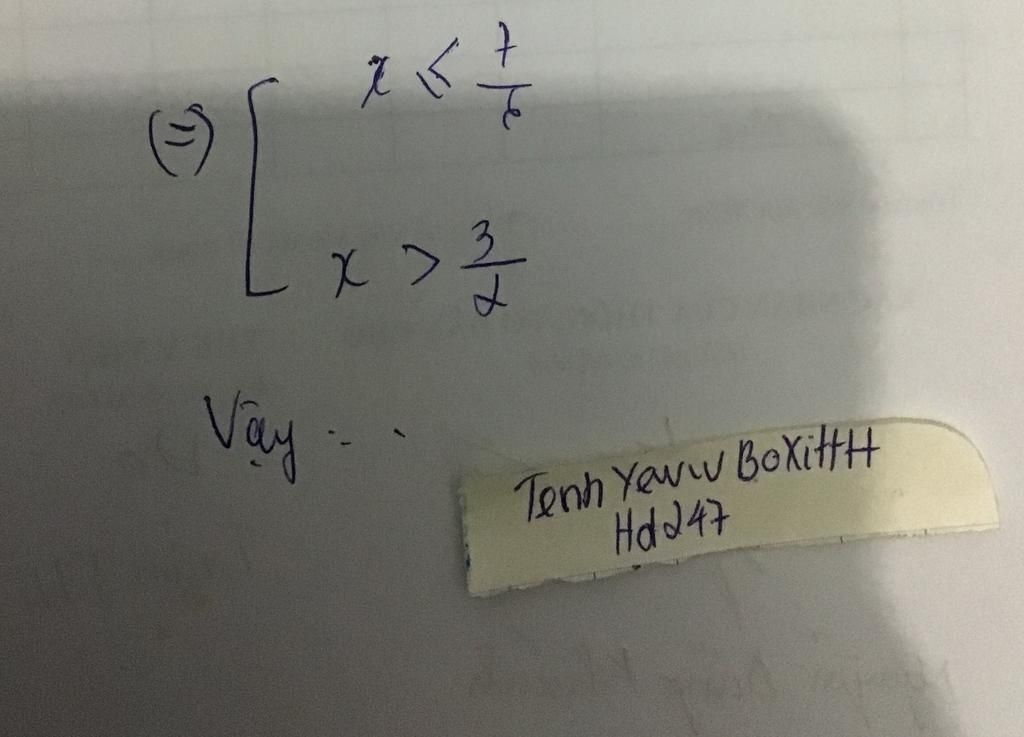 (=) [ x ≤ 7/6
x > 3/2
Vậy ...
Tenh Yeuw BoXittH
Hd247